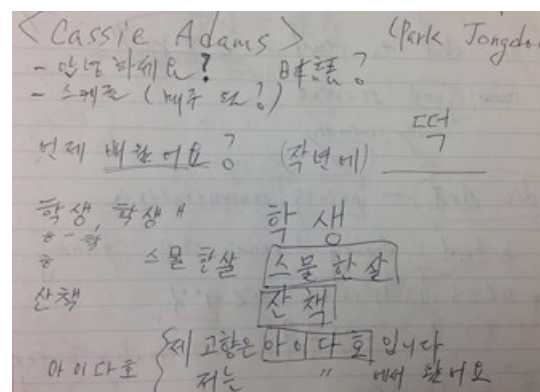 < Cassie Adams > (Park Jongdo
- 안녕하세요?
- 스케쥴 (매주 월?)
떡
언제 배웠어요? (작년에)
학생, 학생 〃 학생
ㅎ - 학
ㅎ 스물한살 스물한살
산책 산책
아이다호 { 제 고향은 아이다호 입니다
저는 〃 에서 왔어요